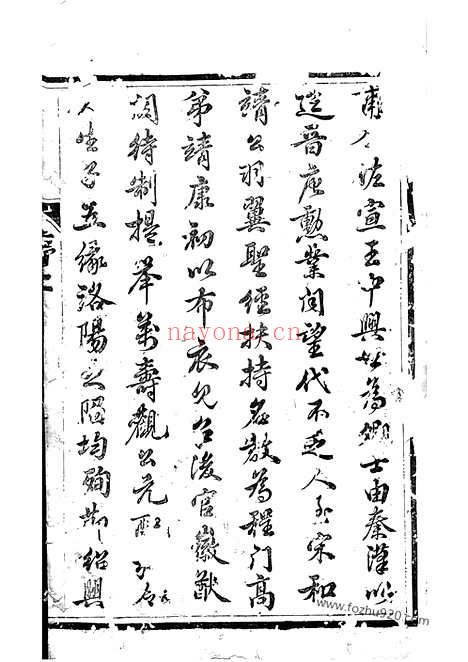 甫公佐宣王中興世為卿士由秦漢以
迄晉唐勳業聞望代不乏人至宋和
靖公羽翼聖經扶持名教為程門高
第靖康初以布衣見召後官徽猷
閣待制提舉萬壽觀公元配
人 益緣洛陽之陷均殉節紹興
nayona.cn
www.fozhu920.com